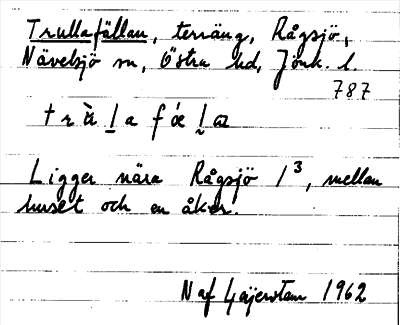 Trullafällan, terräng, Rågsjö,
Nävelsjö sn, Östra hd, Jönk. l.
787
Ligger nära Rågsjö 1³, mellan
huset och en åker.
N af Gajerstam 1962